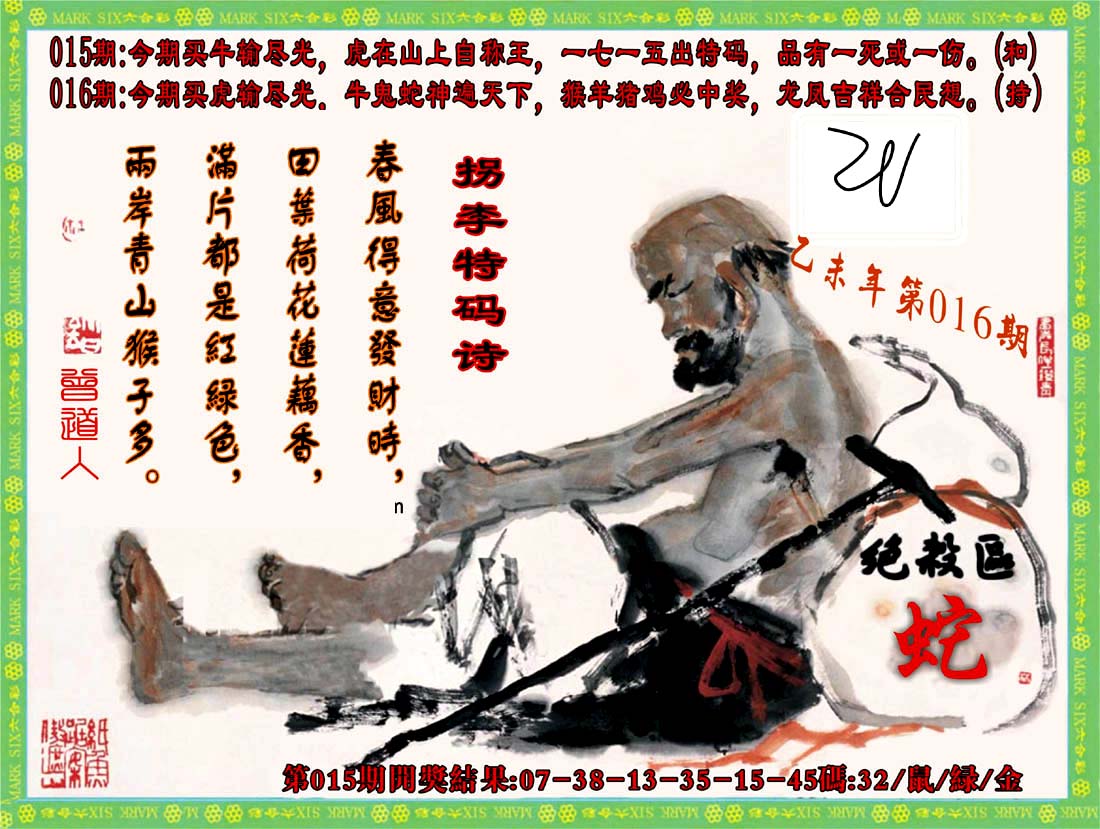 MARK SIX六合彩
015期:今期买牛输尽光，虎在山上自称王，一七一五出特码，品有一死或一伤。(和)
016期:今期买虎输尽光．牛鬼蛇神遍天下，猴羊猪鸡必中奖，龙凤吉祥合民想。(持)
拐李特码诗
春風得意發財時，
田葉荷花蓮藕香，
滿片都是紅綠色，
兩岸青山猴子多。
n
曾道人
乙未年第016期
绝殺區
蛇
第015期開獎結果:07-38-13-35-15-45碼:32/鼠/緑/金